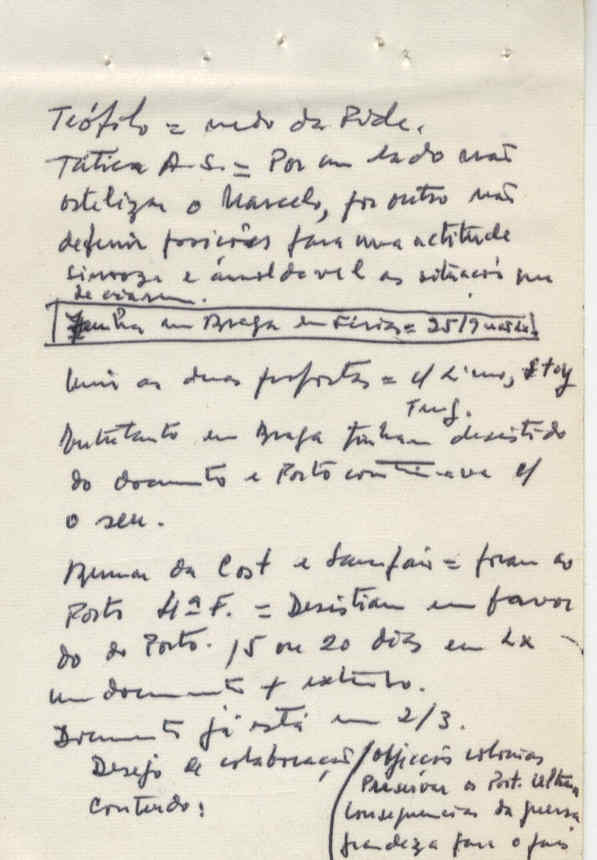 Teófilo = medo da Pide.
Tática A. S. = Por um lado não
ostilizar o Marcelo, por outro não
definir posições para uma actitude
sinuosa e amoldavel as situações que
se criarem.
em Braga em Férias = 25/9
as duas propostas = c/
Entretanto em Braga tinham desistido
do documento e Porto continuava c/
o seu.
da Cost e Sampaio = foram ao
Porto 4ª F. = Desistiam em favor
do do Porto. 15 ou 20 dias em Lx
um documento + extenso.
Documento já está em 2/3.
Desejo de colaboração
Conteudo:
objecções colonias
Preservar o Port.
Consequencias da guerra
grandeza para o país